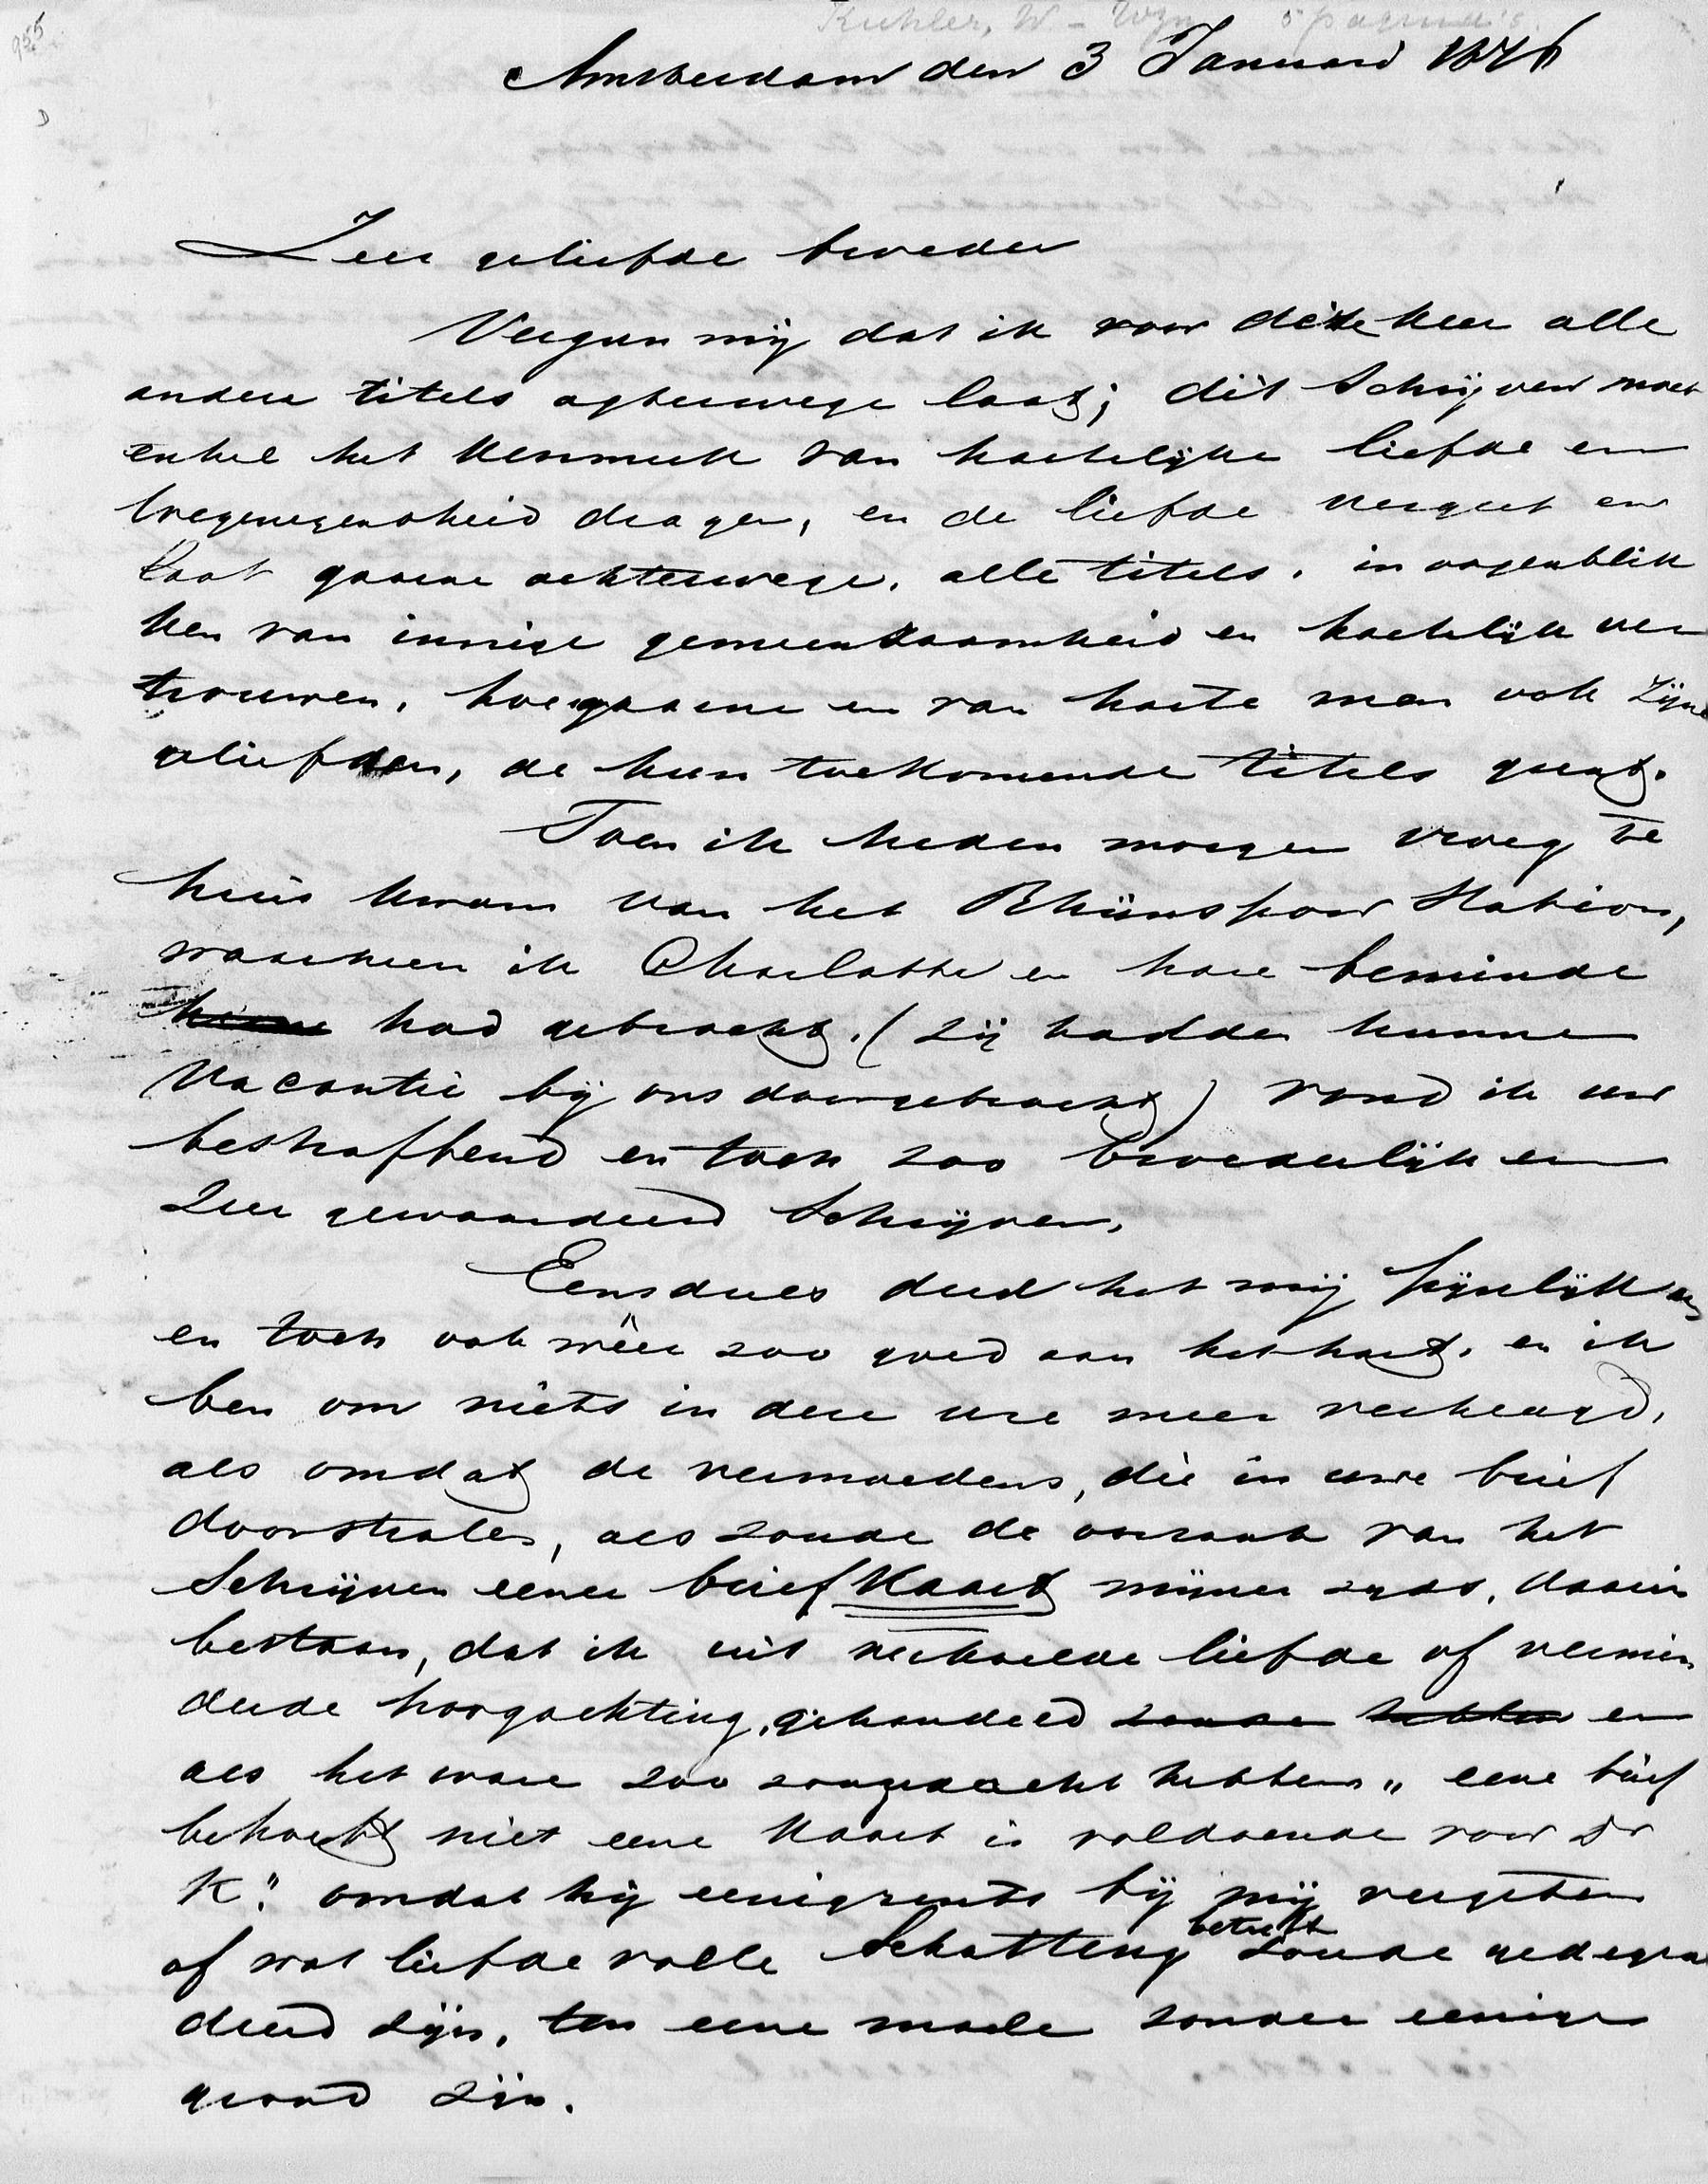 955
Kuhler, W - Wzn 5 pagina's.
Amsterdam den 3 Januari 1876
Zeer geliefde broeder
Vergun mij dat ik voor deze keer alle
andere titels agterwege laat; dit schrijven moet
enkel het kenmerk van hartelijke liefde en
toegenegenheid dragen, en de liefde vergeet en
laat gaarne achterwege, alle titels, in oogenblik
ken van innige gemeenzaamheid en hartelijk ver
trouwen, hoe gaarne en van harte men ook zijne
geliefden, de hun toekomende titels gunt.
Toen ik heden morgen vroeg te
huis kwam van het Rhijnspoor Station,
waarheen ik Charlotte en hare beminde
had gebracht. (zij hadden hunne
vacantie bij ons doorgebracht) vond ik uw
bestraffend en toch zoo broederlijk en
zeer gewaardeerd schrijven.
Eensdeels deed het mij pijnlijk aan
en toch ook wêer zoo goed aan het hart, en ik
ben om niets in deze ure meer verheugd,
als omdat de vermoedens, die in uwe brief
doorstralen, als zoude de oorzaak van het
schrijven eener brief kaart mijner zijds, daarin
bestaan, dat ik uit verkoelde liefde of vermin
derde hoogachting, gehandeld zoude hebben en
als het ware zoo zou gedacht hebben „ eene brief
behoeft niet eene kaart is voldoende voor Dr
K." omdat hij eenigzints bij mij vergeten
of wat liefde volle schatting betreft zoude gedegra
deerd zijn, ten eene male zonder eenige
grond zijn.